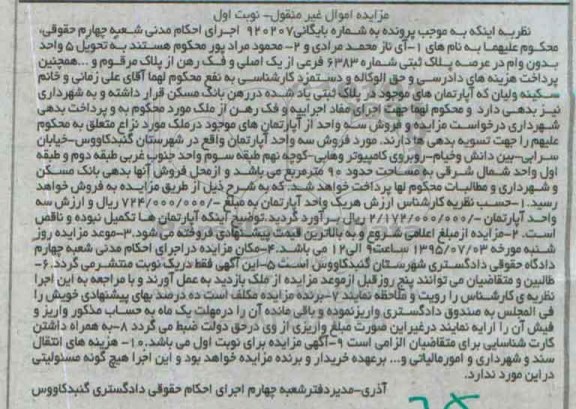 مزایده اموال غیر منقول- نوبت اول
نظر به اینکه به موجب پرونده به شماره بایگانی۹۲۰۲۰۷ اجرای احکام مدنی شعبه چهارم حقوقی،
محکوم علیهما به نام های ۱-آی ناز محمد مرادی و ۲- محمود مراد پور محکوم هستند به تحویل ۵ واحد
بدون وام در عرصه پلاک ثبتی شماره ۶۳۸۳ فرعی از یک اصلی و فک رهن از پلاک مرقوم و ...همچنین
پرداخت هزینه های دادرسی و حق الوکاله و دستمزد کارشناسی به نفع محکوم لهما آقای علی زمانی و خانم
سکینه ولیان که آپارتمان های موجود در پلاک ثبتی یاد شده در رهن بانک مسکن قرار داشته و به شهرداری
نیز بدهی دارد و محکوم لهما جهت اجرای مفاد اجراییه و فک رهن از ملک مورد محکوم به و پرداخت بدهی
شهرداری درخواست مزایده و فروش سه واحد از آپارتمان های موجود درملک مورد نزاع متعلق به محکوم
علیهم را جهت تسویه بدهی ها دارند. مورد فروش سه واحد آپارتمان واقع در شهرستان گنبدکاووس-خیابان
سرابی-بین دانش وخیام-روبروی کامپیوتر وهابی-کوچه نهم طبقه سوم واحد جنوب غربی طبقه دوم و طبقه
اول واحد شمال شرقی به مساحت حدود ۹۰ مترمربع می باشد و ازمحل فروش آنها بدهی بانک مسکن
و شهرداری و مطالبات محکوم لها پرداخت خواهد شد. که به شرح ذیل از طریق مزایده به فروش خواهد
رسید. ۱-حسب نظریه کارشناس ارزش هریک واحد آپارتمان به مبلغ -/۷۲۴/۰۰۰/۰۰۰ ریال و ارزش سه
واحد آپارتمان -/۲/۱۷۲/۰۰۰/۰۰۰ ریال برآورد گردید.توضیح اینکه آپارتمان ها تکمیل نبوده و ناقص
است. ۲-مزایده ازمبلغ اعلامی شروع و به بالاترین قیمت پیشنهادی فروخته می شود.۳-موعد مزایده روز
شنبه مورخه ۱۳۹۵/۰۷/۰۳ ساعت۹ الی۱۲ می باشد.۴-مکان مزایده دراجرای احکام مدنی شعبه چهارم
دادگاه حقوقی دادگستری شهرستان گنبدکاووس است ۵-این آگهی فقط دریک نوبت منتشر می گردد.۶-
طالبین و متقاضیان می توانند پنج روز قبل ازموعد مزایده از ملک بازدید به عمل آورند و با مراجعه به این اجرا
نظریه ی کارشناس را رویت و ملاحظه نمایند ۷-برنده مزایده مکلف است ده درصد بهای پیشنهادی خویش را
فی المجلس به صندوق دادگستری واریزنموده و باقی مانده آن را درمهلت یک ماه به حساب مذکور واریز و
فیش آن را ارایه نمایند درغیراین صورت مبلغ واریزی از وی درحق دولت ضبط می گردد ۸-به همراه داشتن
کارت شناسایی برای متقاضیان الزامی است ۹-آگهی مزایده برای نوبت اول می باشد.۱۰- هزینه های انتقال
سند و شهرداری و امور مالیاتی و... برعهده خریدار و برنده مزایده خواهد بود و این اجرا هیچ گونه مسئولیتی
دراین مورد ندارد.
آذری-مدیردفترشعبه چهارم اجرای احکام حقوقی دادگستری گنبدکاووس